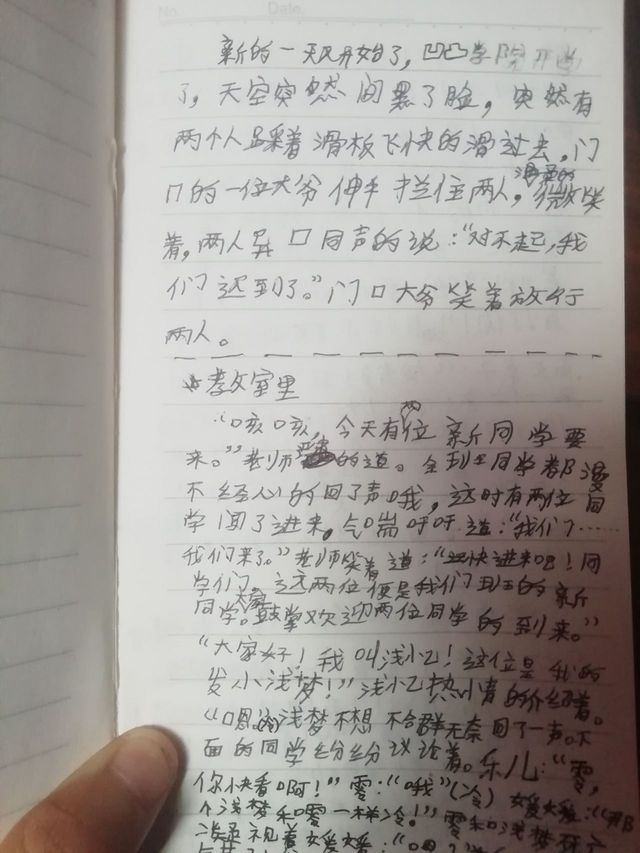 No.          Date.
新的一天又开始了，凹凸学院开学
了，天空突然间黑了脸，突然有
两个人踩着滑板飞快的滑过去，门
口的一位大爷伸手拦住两人，微笑
着，两人异口同声的说：“对不起，我
们迟到了。”门口大爷笑着放行
两人。
教室里
“咳咳，今天有两位新同学要
来。”老师严肃的道。全班同学都漫
不经心的回了声哦，这时有两位同
学闯了进来，气喘呼呼道：“我们……
我们来了。”老师笑着道：“快进来吧！同
学们，这两位便是我们班的新
同学。大家鼓掌欢迎两位同学的到来。”
“大家好！我叫浅忆！这位是我的
发小浅梦！”浅忆热情的介绍着。
“嗯。”(冷)浅梦不想不合群无奈回了一声。下
面的同学纷纷议论着。乐儿：“零，
你快看啊！”零：“哦”(冷)媛媛：“那
个浅梦和零一样冷！”零和浅梦